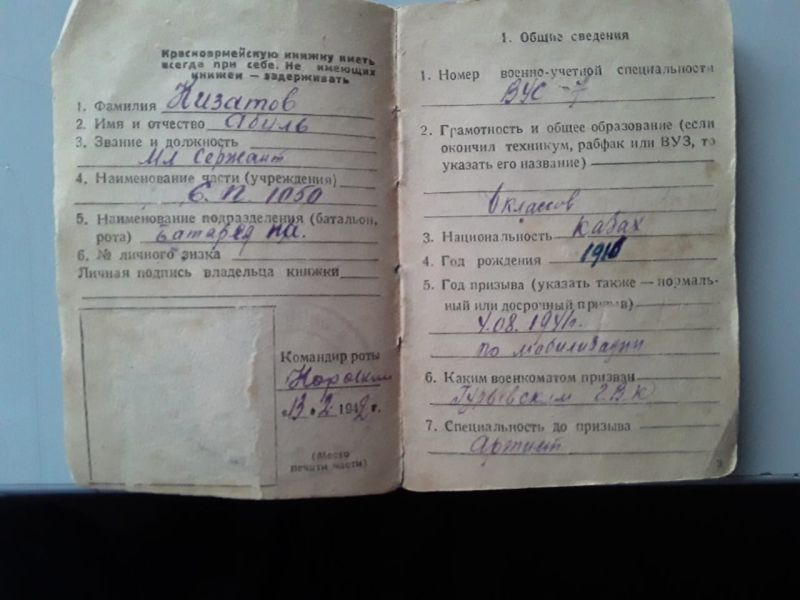 Красноармейскую книжку иметь
всегда при себе. Не имеющих
книжек — задерживать
1. Фамилия Низатов
2. Имя и отчество Абуль
3. Звание и должность
Мл Сержант
4. Наименование части (учреждения)
С. П. 1050
5. Наименование подразделения (батальон,
рота) Батарея
6. № личного знака
Личная подпись владельца книжки
Командир роты
13. 2 1942 г.
(Место
печати части)
1. Общие сведения
1. Номер военно-учетной специальности
ВУС-7
2. Грамотность и общее образование (если
окончил техникум, рабфак или ВУЗ, то
указать его название)
6 классов
3. Национальность Казах
4. Год рождения 1916
5. Год призыва (указать также — нормаль-
ный или досрочный призыв)
4.08.1941г.
по мобилизации
6. Каким военкоматом призван
Гурьевским Г.В.К
7. Специальность до призыва
Артист
3